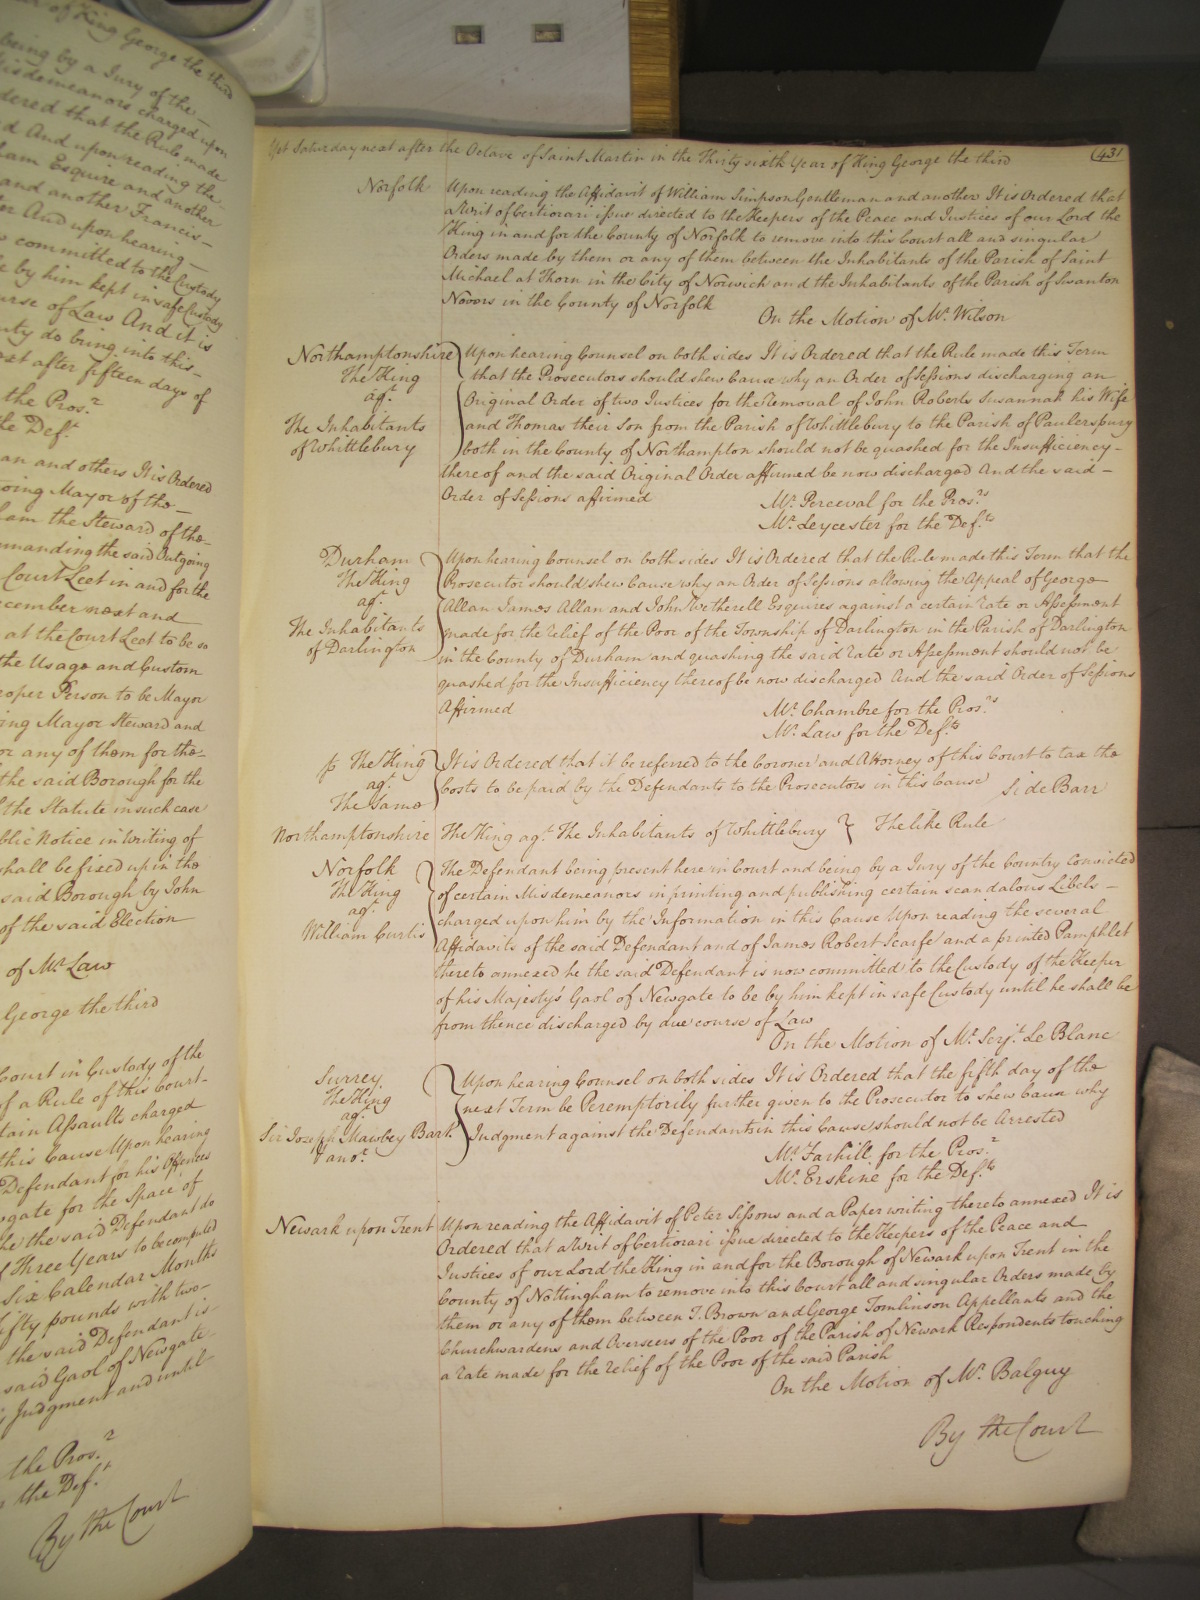 of King George the third
being by a Jury of the
Misdemeanors charged upon
dered that the Rule made
d And upon reading the
ham Esquire and another
and another Francis
And upon hearing
committed to the Custody
by him kept in safe Custody
urse of Law And it is
nty do bring into this
ext after fifteen days of
the Pros.r
the Def.t
an and others It is Ordered
going Mayor of the
ham the Steward of the
manding the said Outgoing
Court Leet in and for the
cember next and
at the Court Leet to be so
the Usage and Custom
roper Person to be Mayor
ing Mayor Steward and
or any of them for the
the said Borough for the
the Statute in such case
blic Notice in Writing of
shall be fixed up in the
said Borough by John
of the said Election
of Mr. Law
George the third
Court in Custody of the
of a Rule of this Court
tain Assaults charged
this Cause Upon hearing
Defendant for his Offences
gate for the Space of
he the said Defendant do
Three Years to be computed
Six Calendar Months
ifty pounds with two
the said Defendant is
said Gaol of Newgate
Judgment and until
the Pros.r
the Def.t
By the Court
Yet Saturday next after the Octave of Saint Martin in the Thirty sixth Year of King George the third 431
Norfolk Upon reading the Affidavit of William Simpson Gentleman and another It is Ordered that
a Writ of Certiorari issue directed to the Keepers of the Peace and Justices of our Lord the
King in and for the County of Norfolk to remove into this Court all and singular
Orders made by them or any of them between the Inhabitants of the Parish of Saint
Michael at Thorn in the City of Norwich and the Inhabitants of the Parish of Swanton
Novors in the County of Norfolk
On the Motion of Mr. Wilson
Northamptonshire
The King
agt.
The Inhabitants
of Whittlebury
Upon hearing Counsel on both sides It is Ordered that the Rule made this Term
that the Prosecutors should shew Cause why an Order of Sessions discharging an
Original Order of two Justices for the Removal of John Roberts Susannah his Wife
and Thomas their Son from the Parish of Whittlebury to the Parish of Paulersbury
both in the County of Northampton should not be quashed for the Insufficiency
thereof and the said Original Order affirmed be now discharged And the said
Order of Sessions affirmed
Mr. Perceval for the Pros.rs
Mr. Leycester for the Def.ts
Durham
The King
agt.
The Inhabitants
of Darlington
Upon hearing Counsel on both sides It is Ordered that the Rule made this Term that the
Prosecutor should shew Cause why an Order of Sessions allowing the Appeal of George
Allan James Allan and John Wetherell Esquires against a certain rate or Assessment
made for the relief of the Poor of the Township of Darlington in the Parish of Darlington
in the County of Durham and quashing the said rate or Assessment should not be
quashed for the Insufficiency thereof be now discharged And the said Order of Sessions
Affirmed
Mr. Chambre for the Pros.rs
Mr. Law for the Def.ts
The King
agt.
The Same
It is Ordered that it be referred to the Coroner and Attorney of this Court to tax the
Costs to be paid by the Defendants to the Prosecutors in this Cause Side Barr
Northamptonshire The King agt. The Inhabitants of Whittlebury } The like Rule
Norfolk
The King
agt.
William Curtis
The Defendant being present here in Court and being by a Jury of the Country Convicted
of certain Misdemeanors in printing and publishing certain scandalous Libels
charged upon him by the Information in this Cause Upon reading the several
Affidavits of the said Defendant and of James Robert Scarfe and a printed Pamphlet
thereto annexed he the said Defendant is now committed to the Custody of the Keeper
of his Majesty's Gaol of Newgate to be by him kept in safe Custody until he shall be
from thence discharged by due course of Law
On the Motion of Mr. Serjt. Le Blanc
Surrey
The King
agt.
Sir Joseph Mawbey Bart.
& anor.
Upon hearing Counsel on both sides It is Ordered that the fifth day of the
next Term be Peremptorily further given to the Prosecutor to shew Cause why
Judgment against the Defendants in this Cause should not be Arrested
Mr. Farhill for the Pros.r
Mr. Erskine for the Def.ts
Newark upon Trent Upon reading the Affidavit of Peter Sissons and a Paper writing thereto annexed It is
Ordered that a Writ of Certiorari issue directed to the Keepers of the Peace and
Justices of our Lord the King in and for the Borough of Newark upon Trent in the
County of Nottingham to remove into this Court all and singular Orders made by
them or any of them between T. Brown and George Tomlinson Appellants and the
Churchwardens and Overseers of the Poor of the Parish of Newark Respondents touching
a rate made for the relief of the Poor of the said Parish
On the Motion of Mr. Balguy
By the Court